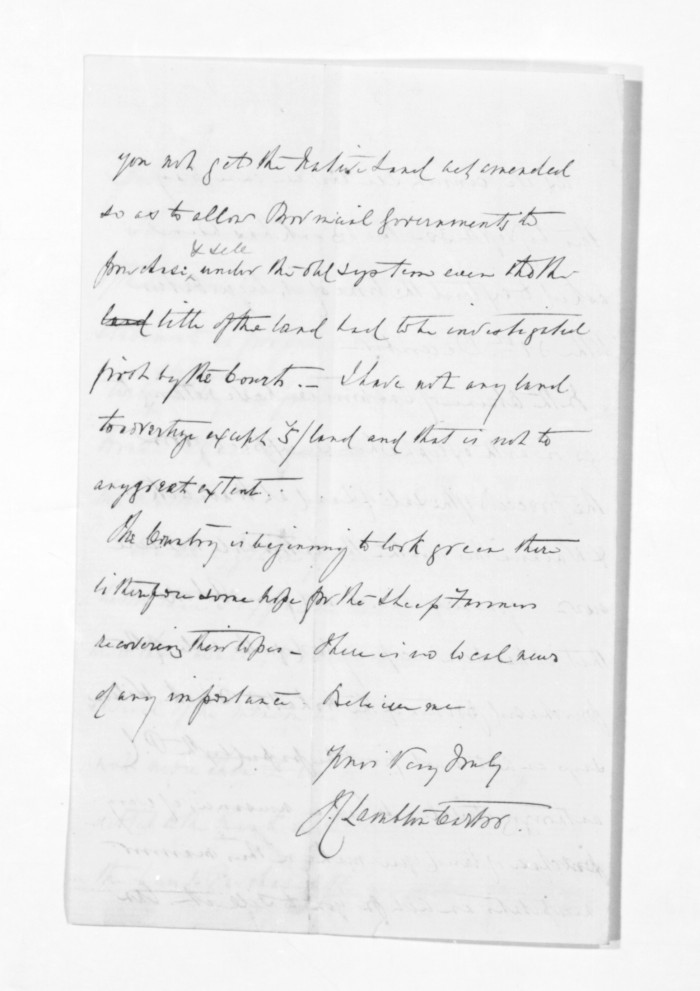 you not get the Native Land act amended
so as to allow Provincial Governments to
& sell
purchase, under the old system even tho' the
land title of the land had to be investigated
first by the Courts. — I have not any land
to advertize except 5/ land and that is not to
any great extent.
The Country is beginning to look green there
is therefore some hope for the Sheep Farmers
recovering their losses — There is no local news
of any importance Believe me
Yours Very Truly
G. S. Cooper